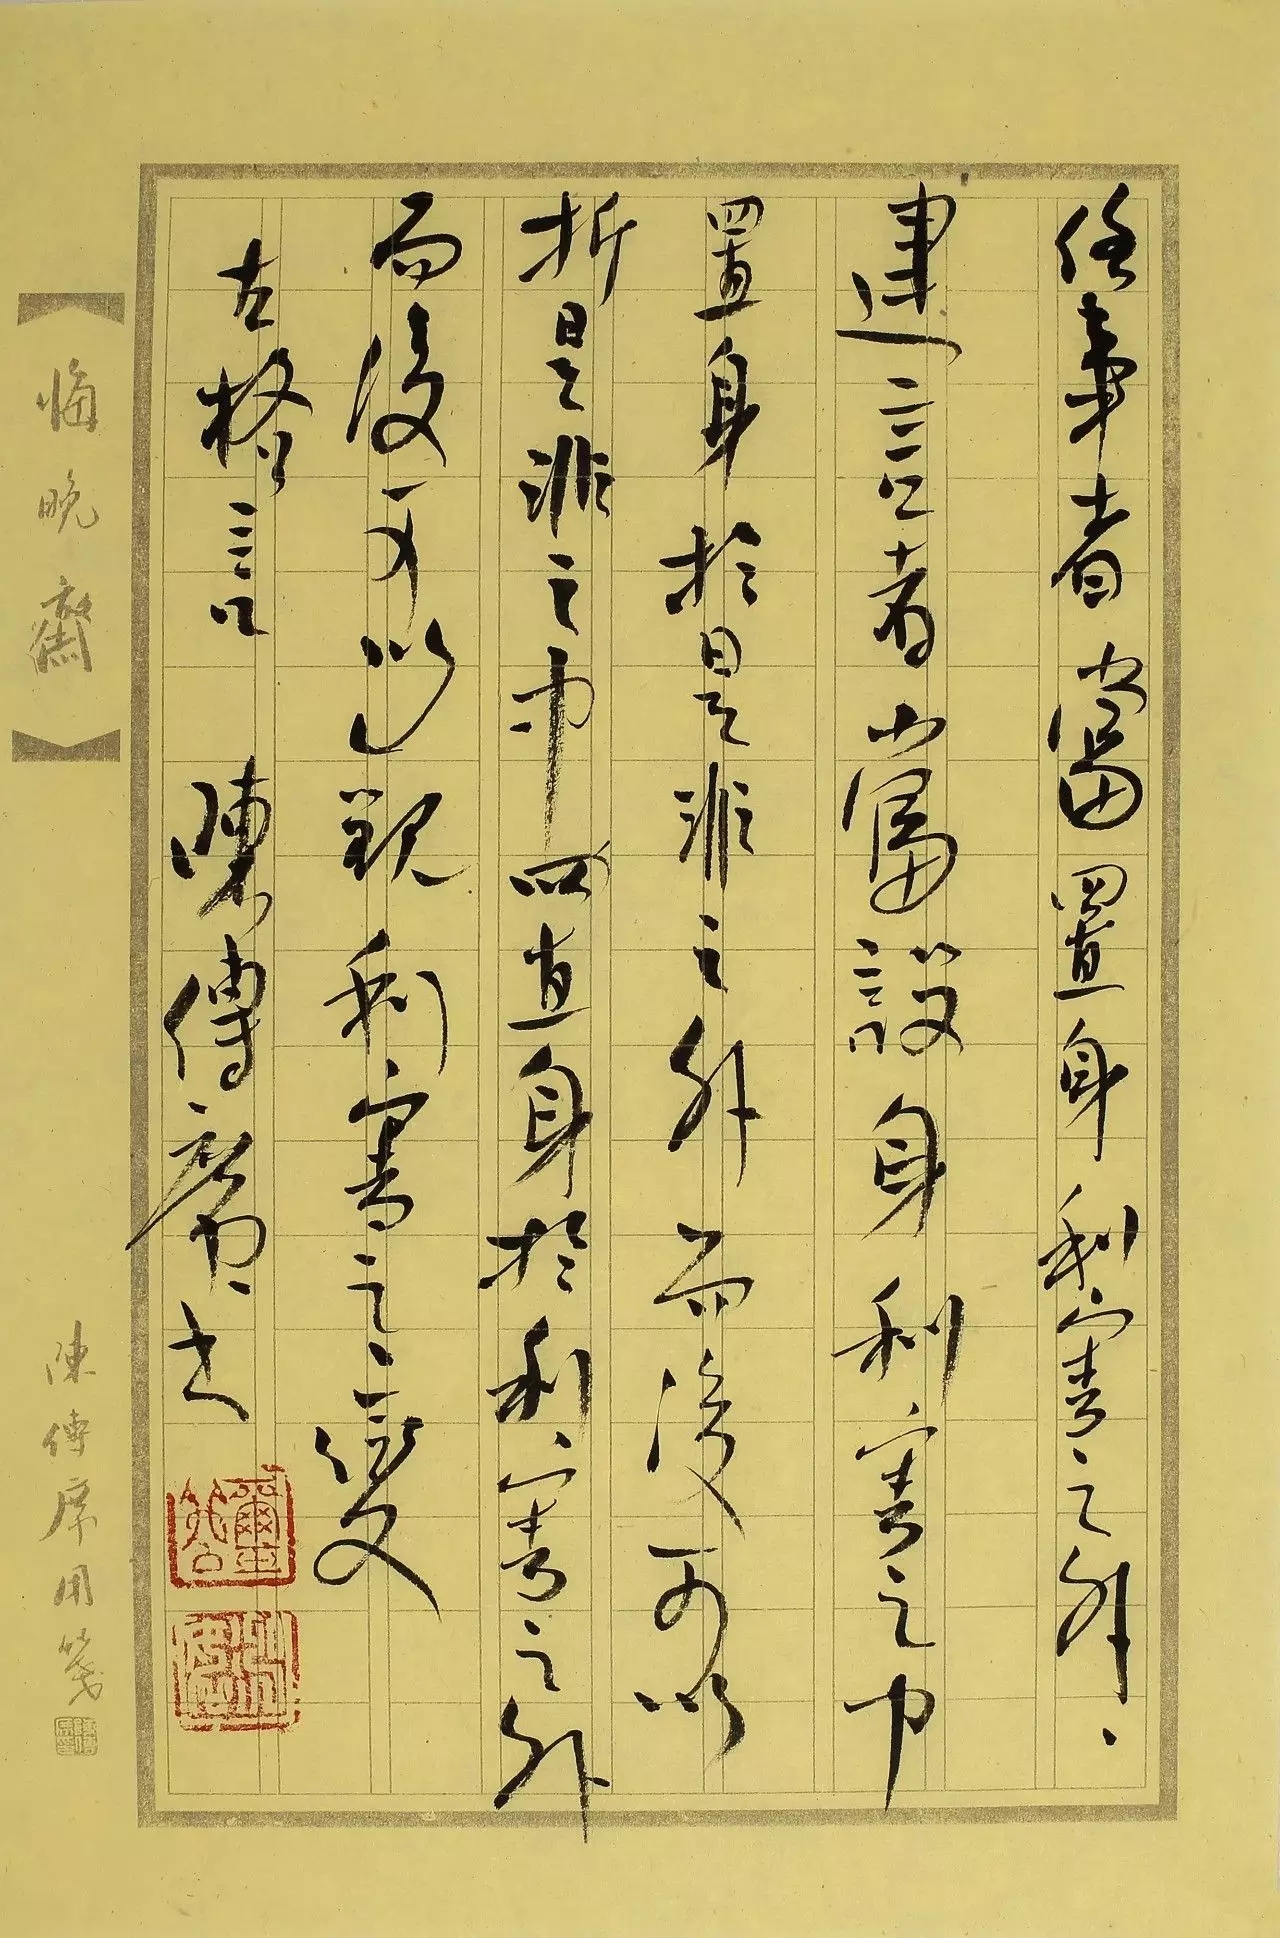 任事者當置身利害之外、
建言者當設身利害之中
置身於是非之外而後可以
折是非之中置身於利害之外
而後可以觀利害之變
右格言 陳傳席書
悔晚齋
陳傳席用箋